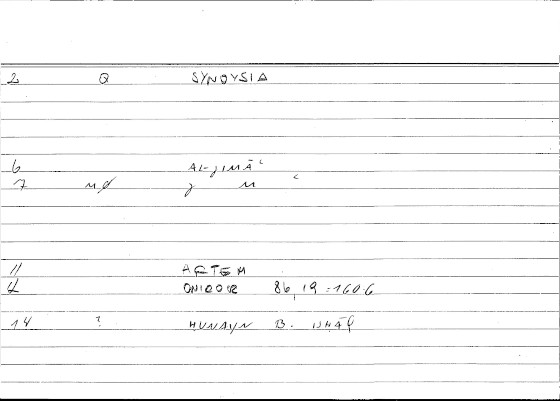 2 Q SYNOYSIA
6 AL-ǦIMĀʿ
7 nd ǧ m ʿ
11 ARTEM
d ONIROCR 86,19 = 160.6
14 ? HUNAYN B. ISHĀQ